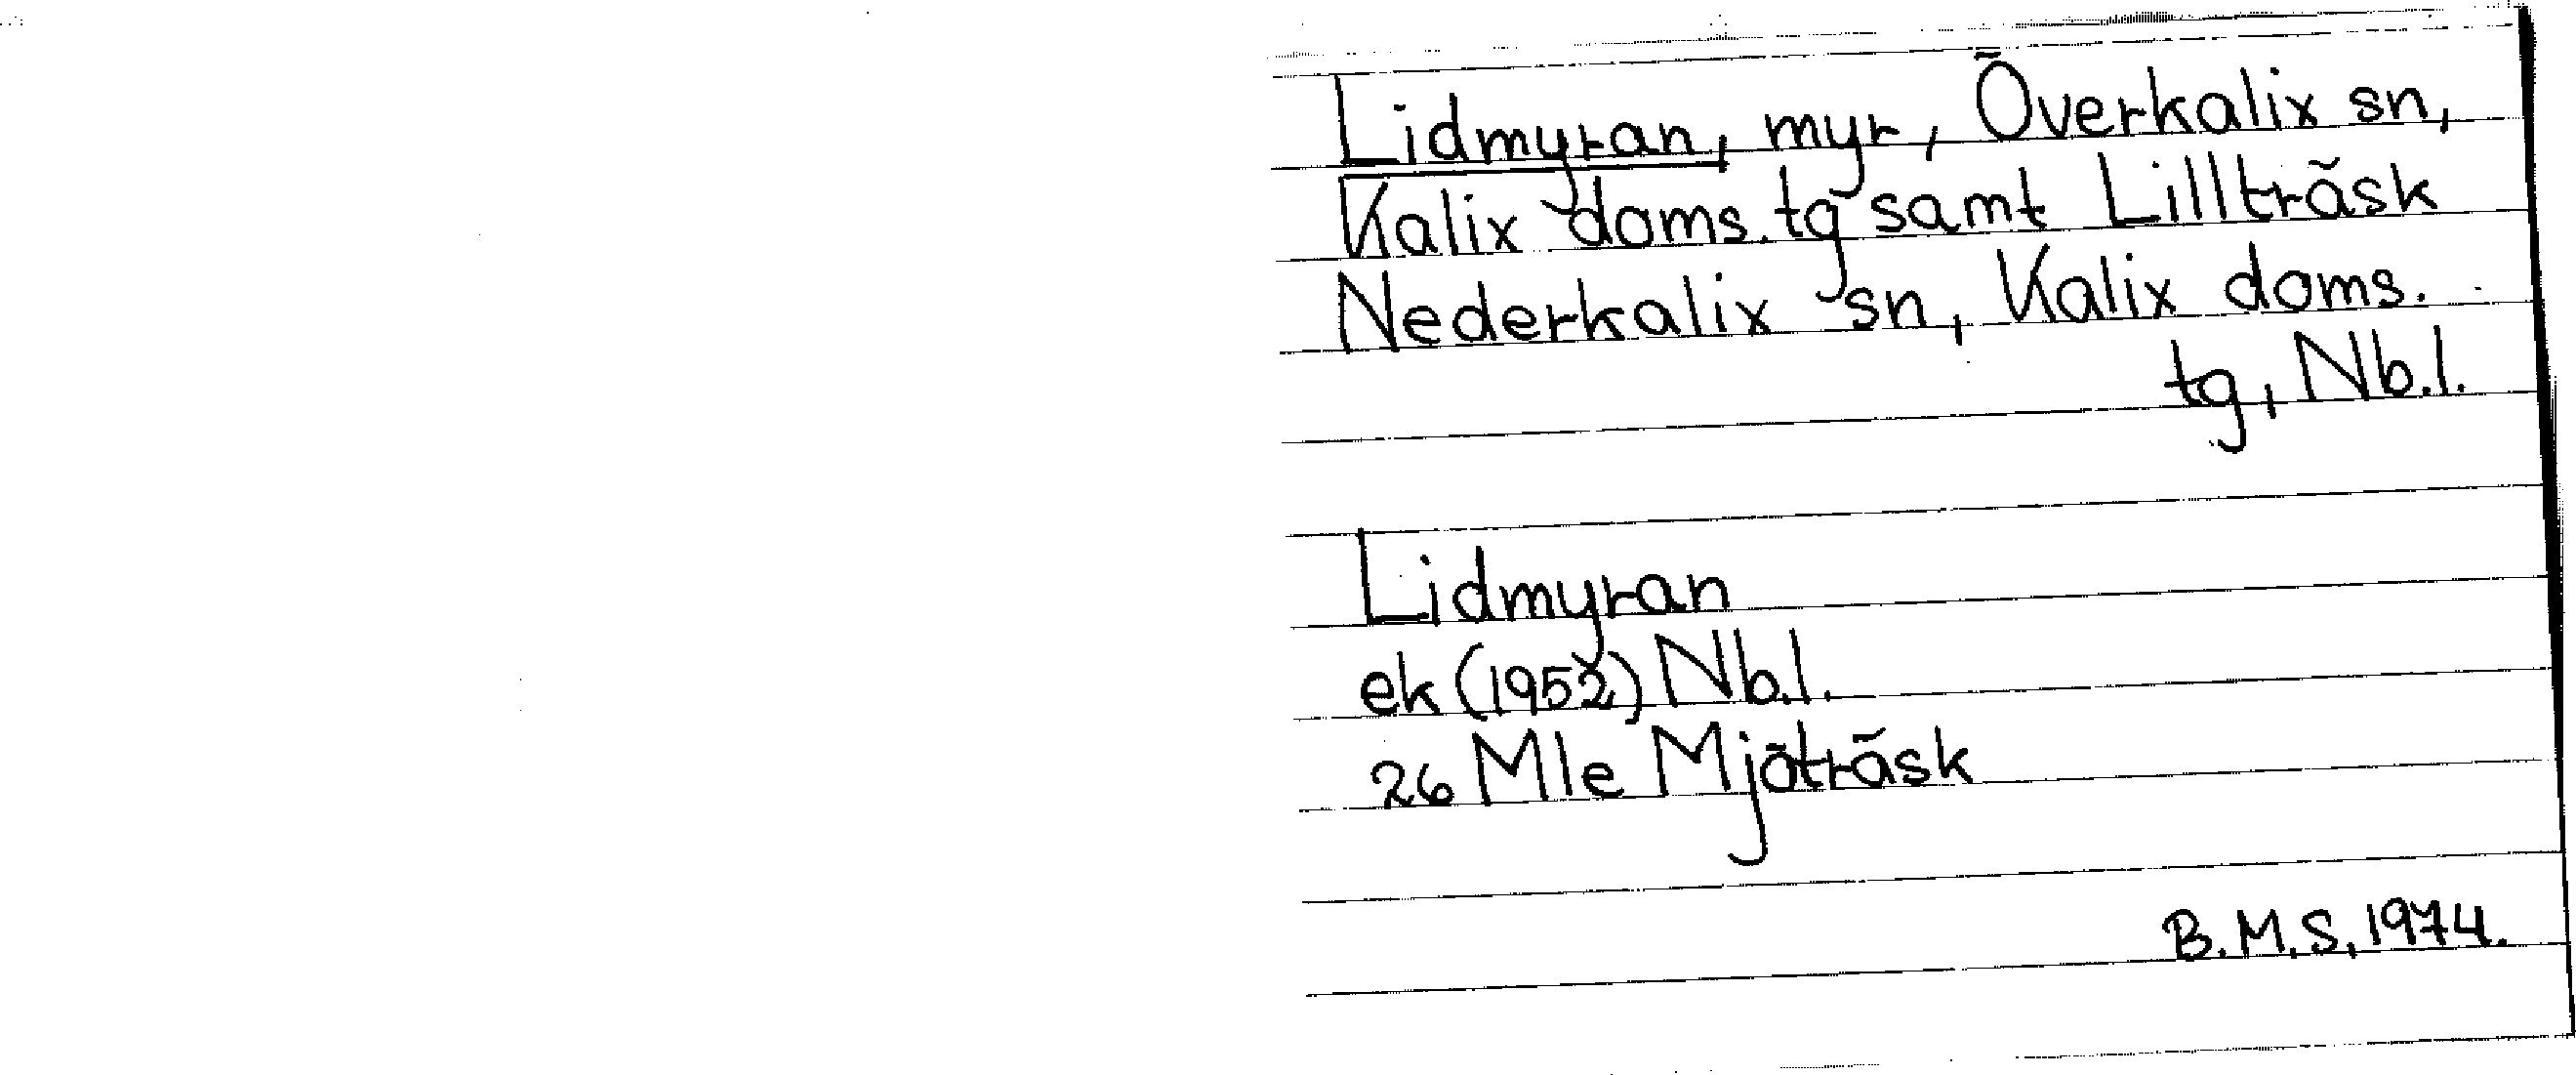 Lidmyran, myr, Överkalix sn,
Kalix doms.tg samt Lillträsk
Nederkalix sn, Kalix doms.
tg, Nb.l.
Lidmyran
ek (1952) Nb.l.
26 Mle Mjöträsk
B.M.S, 1974.